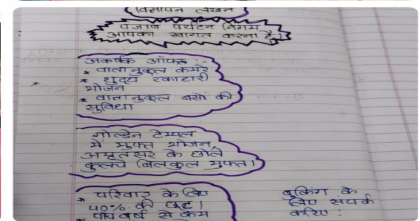 विज्ञापन लेखन
पंजाब पर्यटन निगम
आपका स्वागत करता है
आकर्षक ऑफर :-
* वातानुकूल कमरे
* शुद्ध शाकाहारी
भोजन
* वातानुकूल बसों की
सुविधा
गोल्डन टेम्पल
में मुफ्त भोजन,
अमृतसर के छोले
कुल्चे (बिलकुल मुफ्त)
* परिवार के लिए
40% की छूट।
पाँच वर्ष से कम
बुकिंग के
लिए संपर्क
करिए -